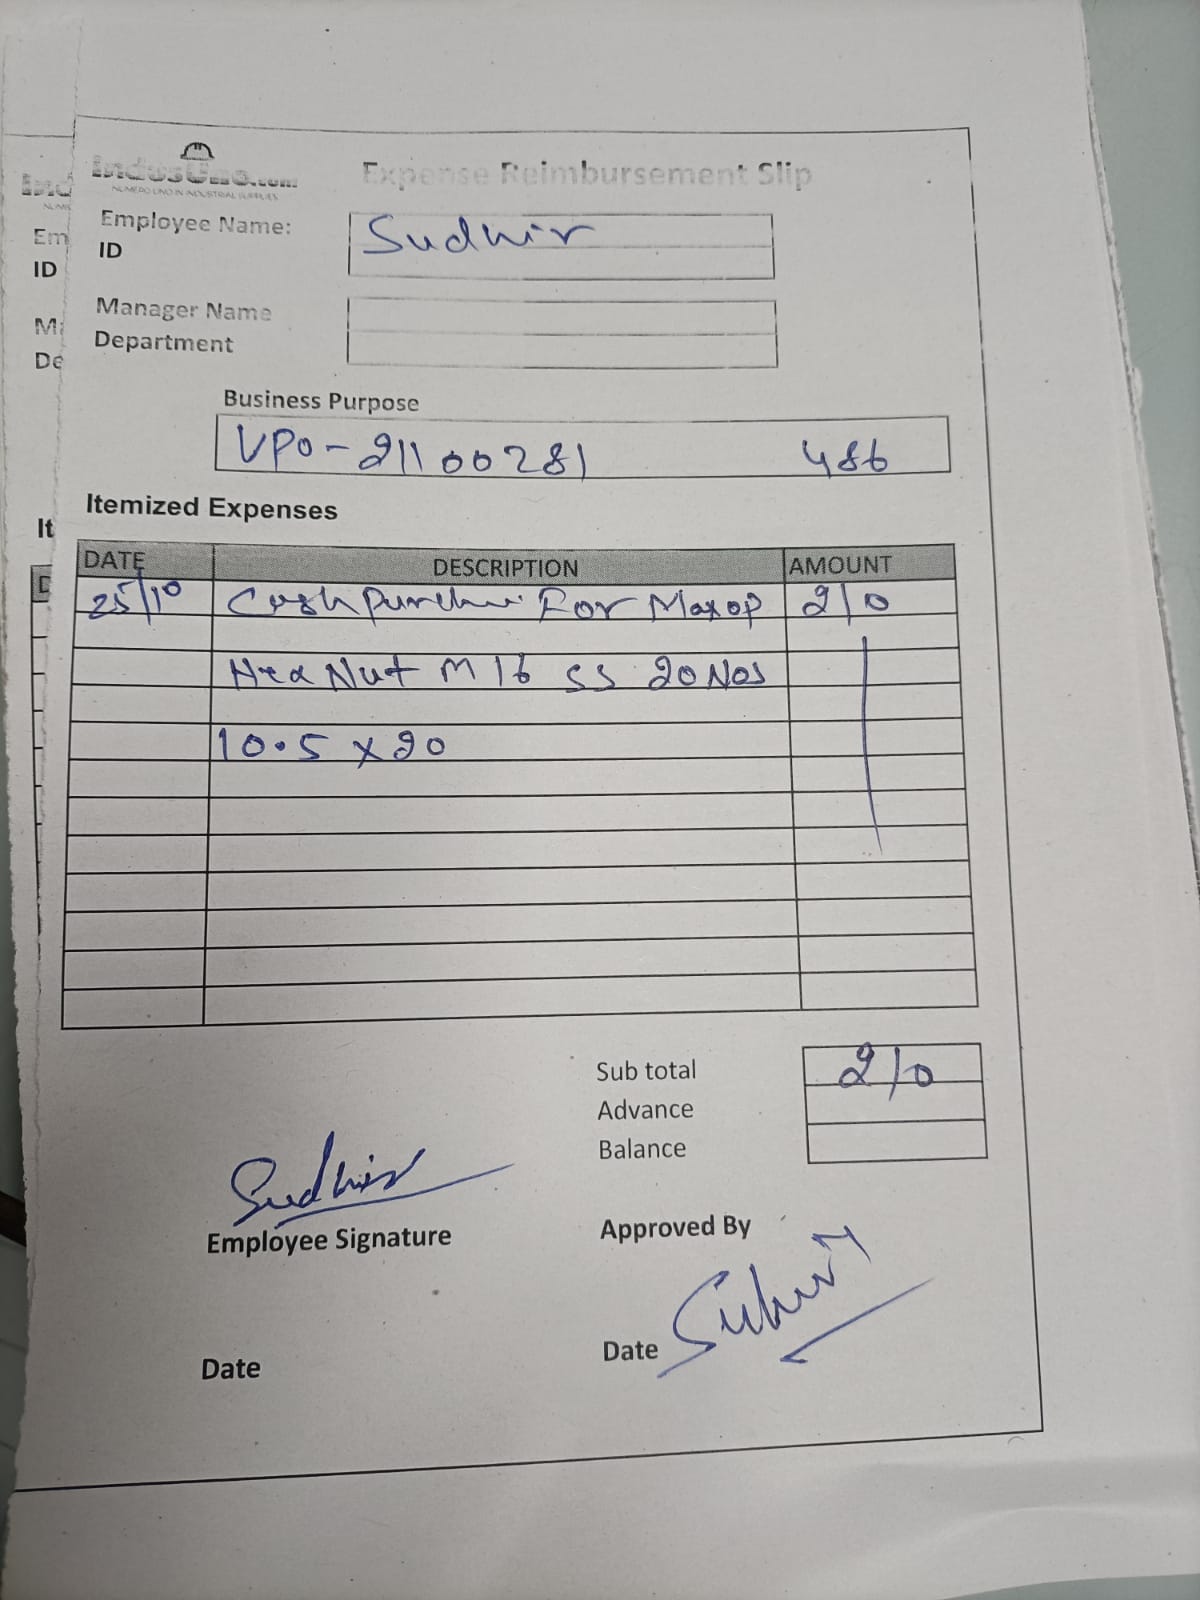 IndusUno.com
NUMERO UNO IN INDUSTRIAL SUPPLIES
Expense Reimbursement Slip
Employee Name: Sudhir
ID
Manager Name
Department
Business Purpose
VPO-21100281 486
Itemized Expenses
DATE DESCRIPTION AMOUNT
25/10 Cash For Maxop 210
Hex Nut M16 SS 20 Nos
10.5 x 20
Sub total 210
Advance
Balance
Sudhir
Employee Signature
Approved By
Date
Date
Ind
NUME
Em
ID
Ma
De
It
D